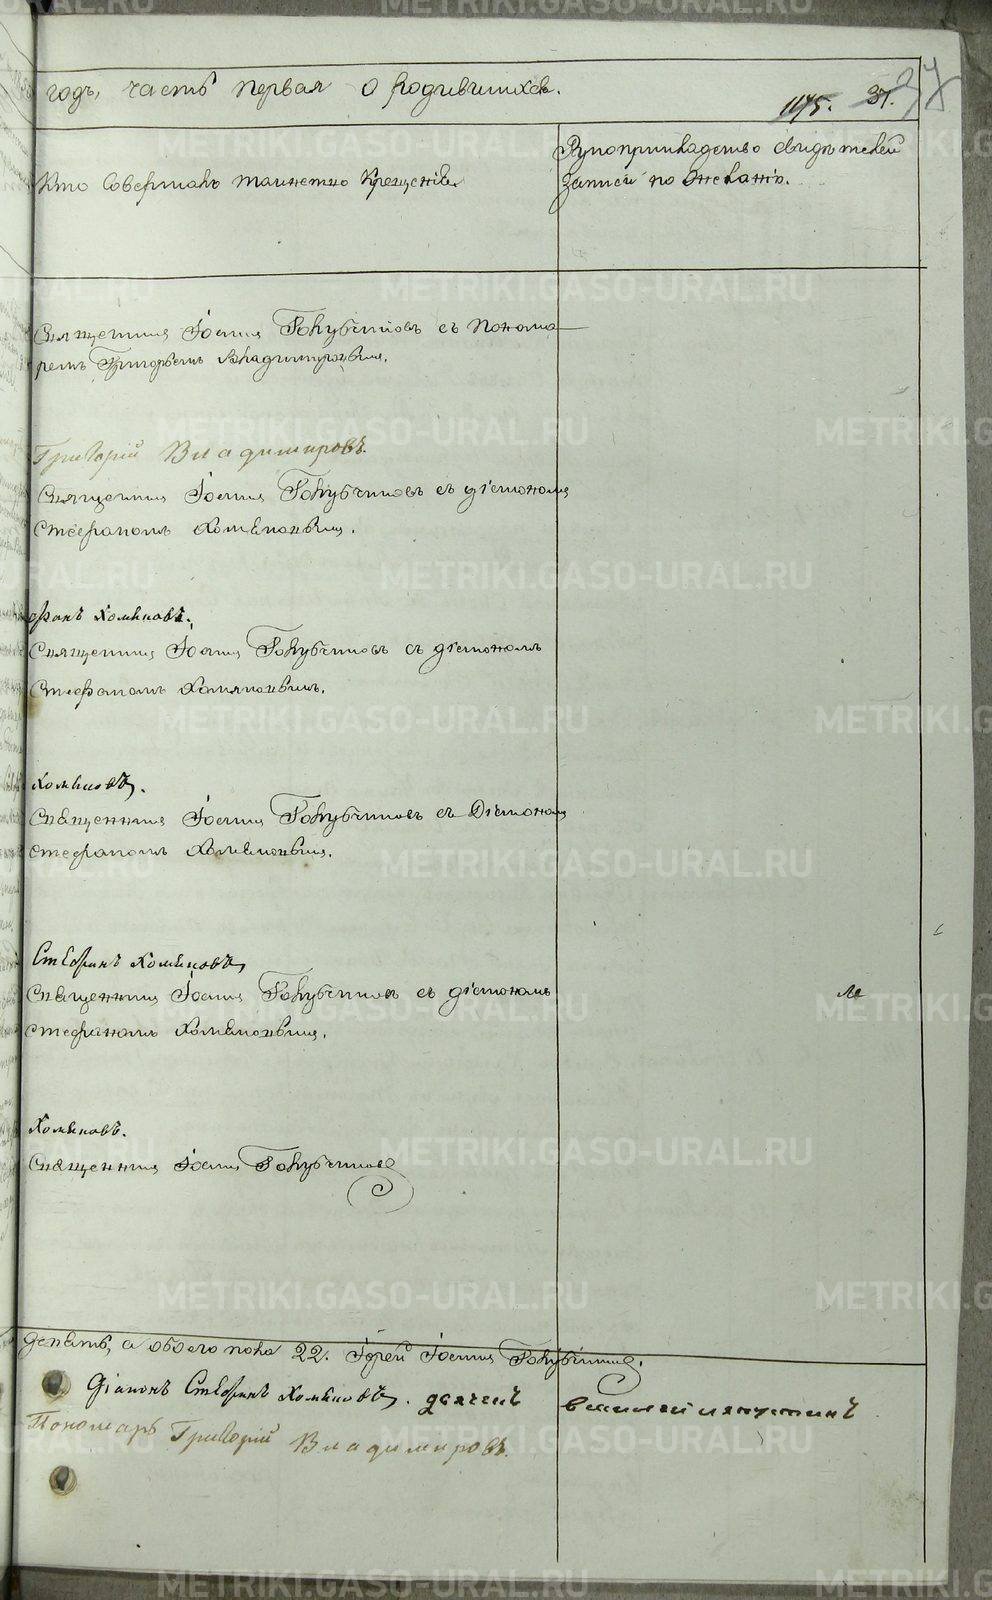 годъ, часть первая о родившихся.
1175. 37.
Кто совершалъ таинство крещенія.
Рукоприкладство свидѣтелей
записей по желанію.
Священникъ Іоаннъ Голубчиковъ съ понома
ремъ Григорьемъ Владимировымъ.
Григорій Владимировъ.
Священникъ Іоаннъ Голубчиковъ съ діакономъ
Стефаномъ Хомяковымъ.
Хомяковъ.
Священникъ Іоаннъ Голубчиковъ съ діакономъ
Стефаномъ Хомяковымъ.
Хомяковъ.
Священникъ Іоаннъ Голубчиковъ съ Діакономъ
Стефаномъ Хомяковымъ.
Стефанъ Хомяковъ
Священникъ Іоаннъ Голубчиковъ съ діакономъ
Стефаномъ Хомяковымъ.
Хомяковъ.
Священникъ Іоаннъ Голубчиковъ
девять, а обоего пола 22. Іерей Іоаннъ Голубчиковъ.
Діаконъ Стефанъ Хомяковъ. дьячекъ
Пономарь Григорій Владимировъ.
METRIKI.GASO-URAL.RU